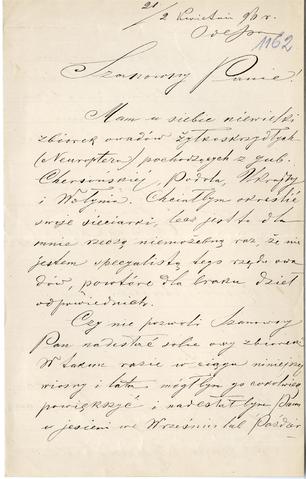 21/2 Kwietnia 90 r.
Odessa
1162
Szanowny Panie!
Mam u siebie niewielki
zbiorek owadów żyłkoskrzydłych
(Neuroptera) pochodzących z gub.
Chersońskiej, Podola, Ukrainy
i Wołynia. Chciałbym określić
swoje sieciarki, lecz jest to dla
mnie rzeczą niemożebną raz, że nie
jestem specyalistą tego rzędu owa-
dów, powtóre dla braku dzieł
odpowiednich.
Czy nie pozwoli Szanowny
Pan nadesłać sobie ów zbiorek
W takim razie w ciągu niniejszej
wiosny i lata mógłbym go
powiększyć i nadesłałbym Panu
w jesieni we Wrześniu lub Paździer